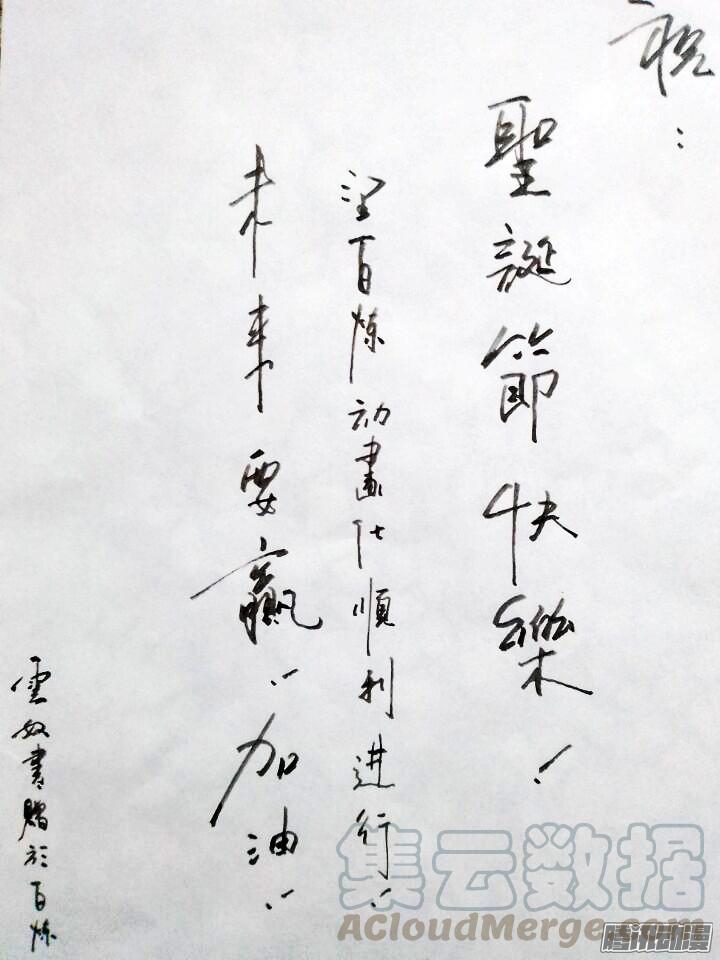 祝：
聖誕節快樂！
望百炼动畫化順利进行！
未来要贏！加油！
雲奴書贈於百炼
集云数据
ACloudMerge.com
腾讯动漫